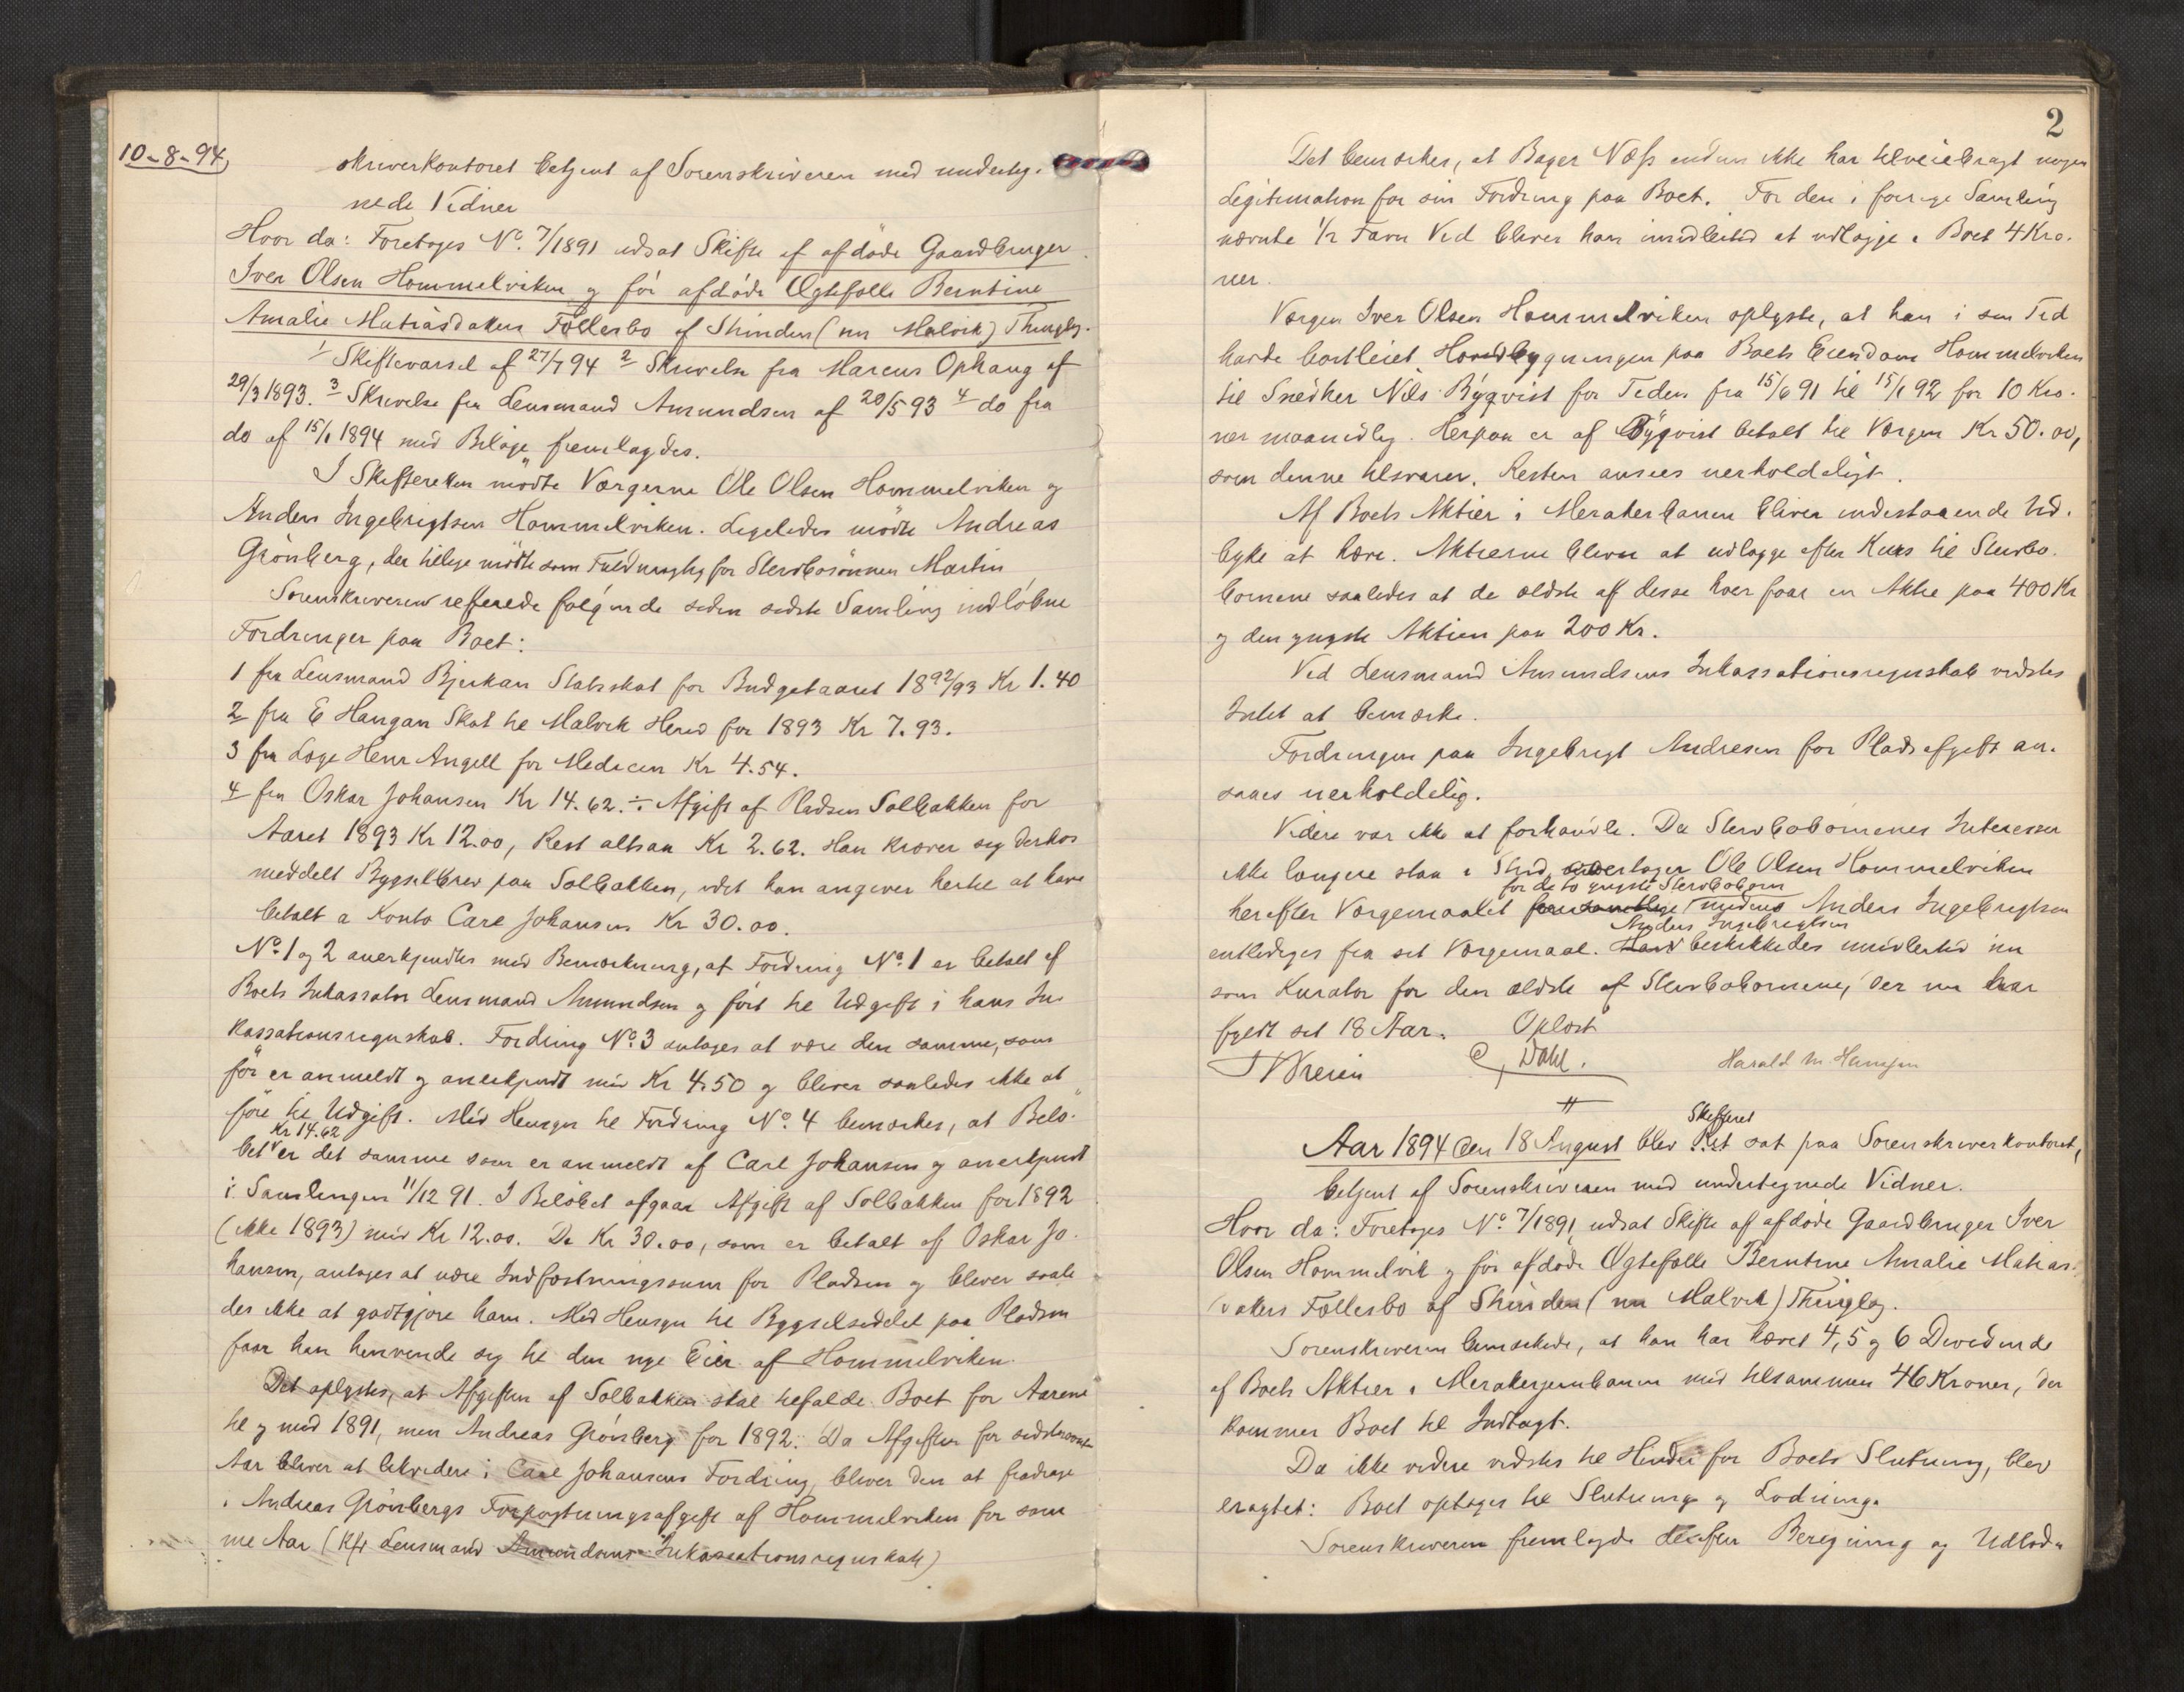 10-8-94
skriverkontoret betjent af Sorenskriveren med underteg-
nede Vidner
Hvor da: Foretoges No. 7/1891 udsat Skifte ef afdøde Gaardbruger
Iver Olsen Hommelviken og før afdøde Ægtefolle Berntine
Amalie Matiasdatters Føllesbo af Strinden (nu Malvik) Thinglag.
1 Skiftevarsel af 27/7 94 2 Skrivelse fra Marcus Ophaug af
29/3 1893. 3 Skrivelse fra Lensmand Amundsen af 20/5 93 4 do fra
do af 15/1 1894 med Bilage fremlagdes.
I Skifteretten mødte Vørgerne Ole Olsen Hommelviken og
Anders Ingebrigtsen Hommelviken. Ligeledes mødte Andreas
Grønberg, der tillige mødte som Fuldmægtig for Stervbosønnen Martin
Sorenskriveren refferede følgende siden sidste Samling indløbne
Fordringer paa Boet:
1 fra Lensmand Bjerkan Statsskat for Budgetaaret 1892/93 Kr 1.40
2 fra E Haugan Skat til Malvik Herred for 1893 Kr 7.93.
3 fra Læge Henr Angell for Medicin Kr 4.54.
4 fra Oskar Johansen Kr 14.62. ÷ Afgift af Pladsen Solbakken for
Aaret 1893 Kr 12.00, Rest altsaa Kr 2.62. Han kræver sig derhos
meddelt Bygselbrev paa Solbakken, idet han angiver hertil at have
betalt a Konto Carl Johansen Kr 30.00.
No. 1 og 2 anerkjendtes med Bemærkning, at Fordring No. 1 er betalt af
Boets Inkassator Lensmand Amundsen og ført til Udgift i hans In-
kassationsregnskab. Fordring No. 3 antages at være den samme, som
før er anmeldt og anerkjendt med Kr 4.50 og bliver saaledes ikke at
føre til Udgift. Med Hensyn til Fordring No. 4 bemærkes, at Belø-
Kr 14.62
bet er det samme som er anmeldt af Carl Johansen og anerkjendt
i Samlingen 11/12 91. I Beløbet afgaar Afgift af Solbakken for 1892
(ikke 1893) med Kr 12.00. De Kr 30.00, som er betalt af Oskar Jo-
hansen, antages at være Indfæstningssum for Pladsen og bliver saale
des ikke at godtgjøre ham. Med Hensyn til Bygselseddel paa Pladsen
faar han henvende sig til den nye Eier af Hommelviken.
Det oplystes, at Afgiften af Solbakken skal tilfalde Boet for Aarene
til og med 1891, men Andreas Grønberg for 1892. Da Afgiften for sidstnævnte
Aar bliver at likvidere i Carl Johansens Fordring, bliver den at fradrage
i Andreas Grønbergs Forpagtningsafgift af Hommelviken for sam
me Aar (Kfr Lensmand Amundsens Inkassationsregnskab)
2
Det bemærkes, at Bager Næss endnu ikke har tilveiebragt nogen
Legitimation for sin Fordring paa Boet. For den i forrige Samling
nævnte 1/2 Favn Ved bliver han imidlertid at udlægge i Boet 4 Kro-
ner.
Værgen Iver Olsen Hommelviken oplyste, at han i sin Tid
havde bortleiet Hovedbygningen paa Boets Eiendom Hommelviken
til Snedker Nils Byqvist for Tiden fra 15/6 91 til 15/1 92 for 10 Kro-
ner maanedlig. Herpaa er af Byqvist betalt til Værgen Kr 50.00,
som denne tilsvarer. Resten ansees uerholdeligt.
Af Boets Aktier i Merakerbanen bliver indestaaende Ud-
bytte at hæve. Aktierne bliver at udlægge efter Kurs til Stervbo-
børnene saaledes at de ældste af disse hver faar en Aktie paa 400 Kr
og den yngste Aktien paa 200 Kr.
Ved Lensmand Amundsens Inkassationsregnskab vidstes
Intet at bemærke.
Fordringen paa Ingebrigt Andresen for Pladsafgift an-
saaes uerholdelig.
Videre var ikke at forhandle. Da Stervbobørnenes Interesser
ikke længere staa i Strid, overtager Ole Olsen Hommelviken
for de to yngste Stervbobørn
herefter Værgemaalet for samtlige medens Anders Ingebrigtsen
Anders Ingebrigtsen
entlediges fra sit Værgemaal. Han beskikkedes imidlertid nu
som Kurator for den ældste af Stervbobørnene, der nu har
fyldt sit 18 Aar. Opløst
C. Dahl. Harald M. Hansen
Skifteret
Aar 1894 den 18 August blev Ret sat paa Sorenskriverkontoret,
betjent af Sorenskriveren med undertegnede Vidner.
Hvor da: Foretoges No. 7/1891, udsat Skifte af afdøde Gaardbruger Iver
Olsen Hommelvik og før afdøde Ægtefolle Berntine Amalie Matias-
datters Føllesbo af Strinden (nu Malvik) Thinglag.
Sorenskriveren bemærkede, at han har hævet 4, 5 og 6 Dividende
af Boets Aktier i Merakerjernbanen med tilsammen 46 Kroner, der
kommer Boet til Indtægt.
Da ikke videre vidstes til Hinder for Boets Slutning, blev
eragtet: Boet optages til Slutning og Lodning.
Sorenskriveren fremlagde derefter Beregning og Udlod-